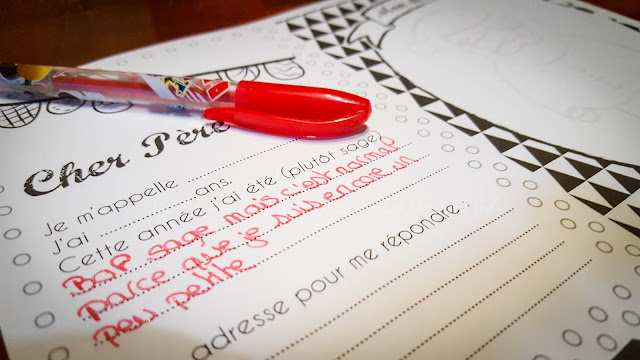 Cher Père
Je m'appelle
J'ai ans.
Cette année j'ai été (plutôt sage)
Bap sage mais c'est normal
parce que je suis encore un
peu petite
adresse pour me répondre